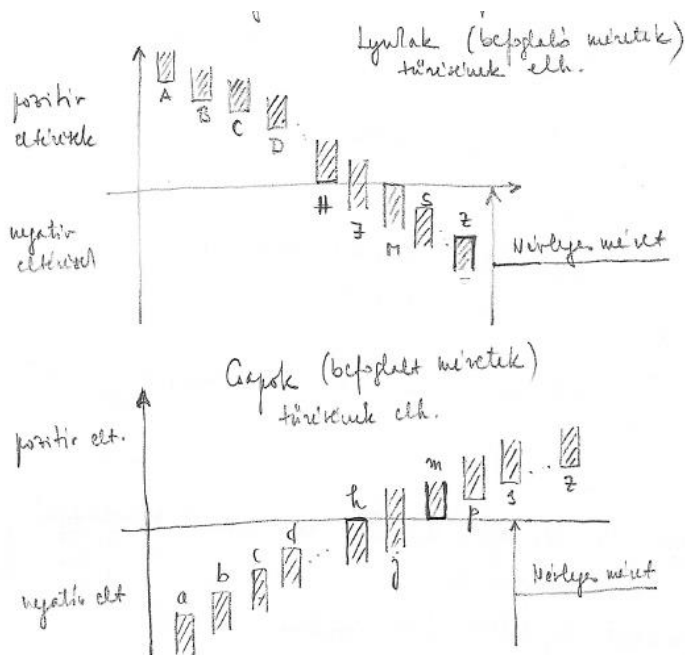 Lyukak (befoglaló méretek)
tűrésének elh.
pozitív
eltérések
A
B
C
D
H
J
M
S
Z
negatív
eltérések
Névleges méret
Csapok (befoglalt méretek)
tűrésének elh.
pozitív elt.
m
h
p
s
z
d
c
j
b
a
negatív elt
Névleges méret